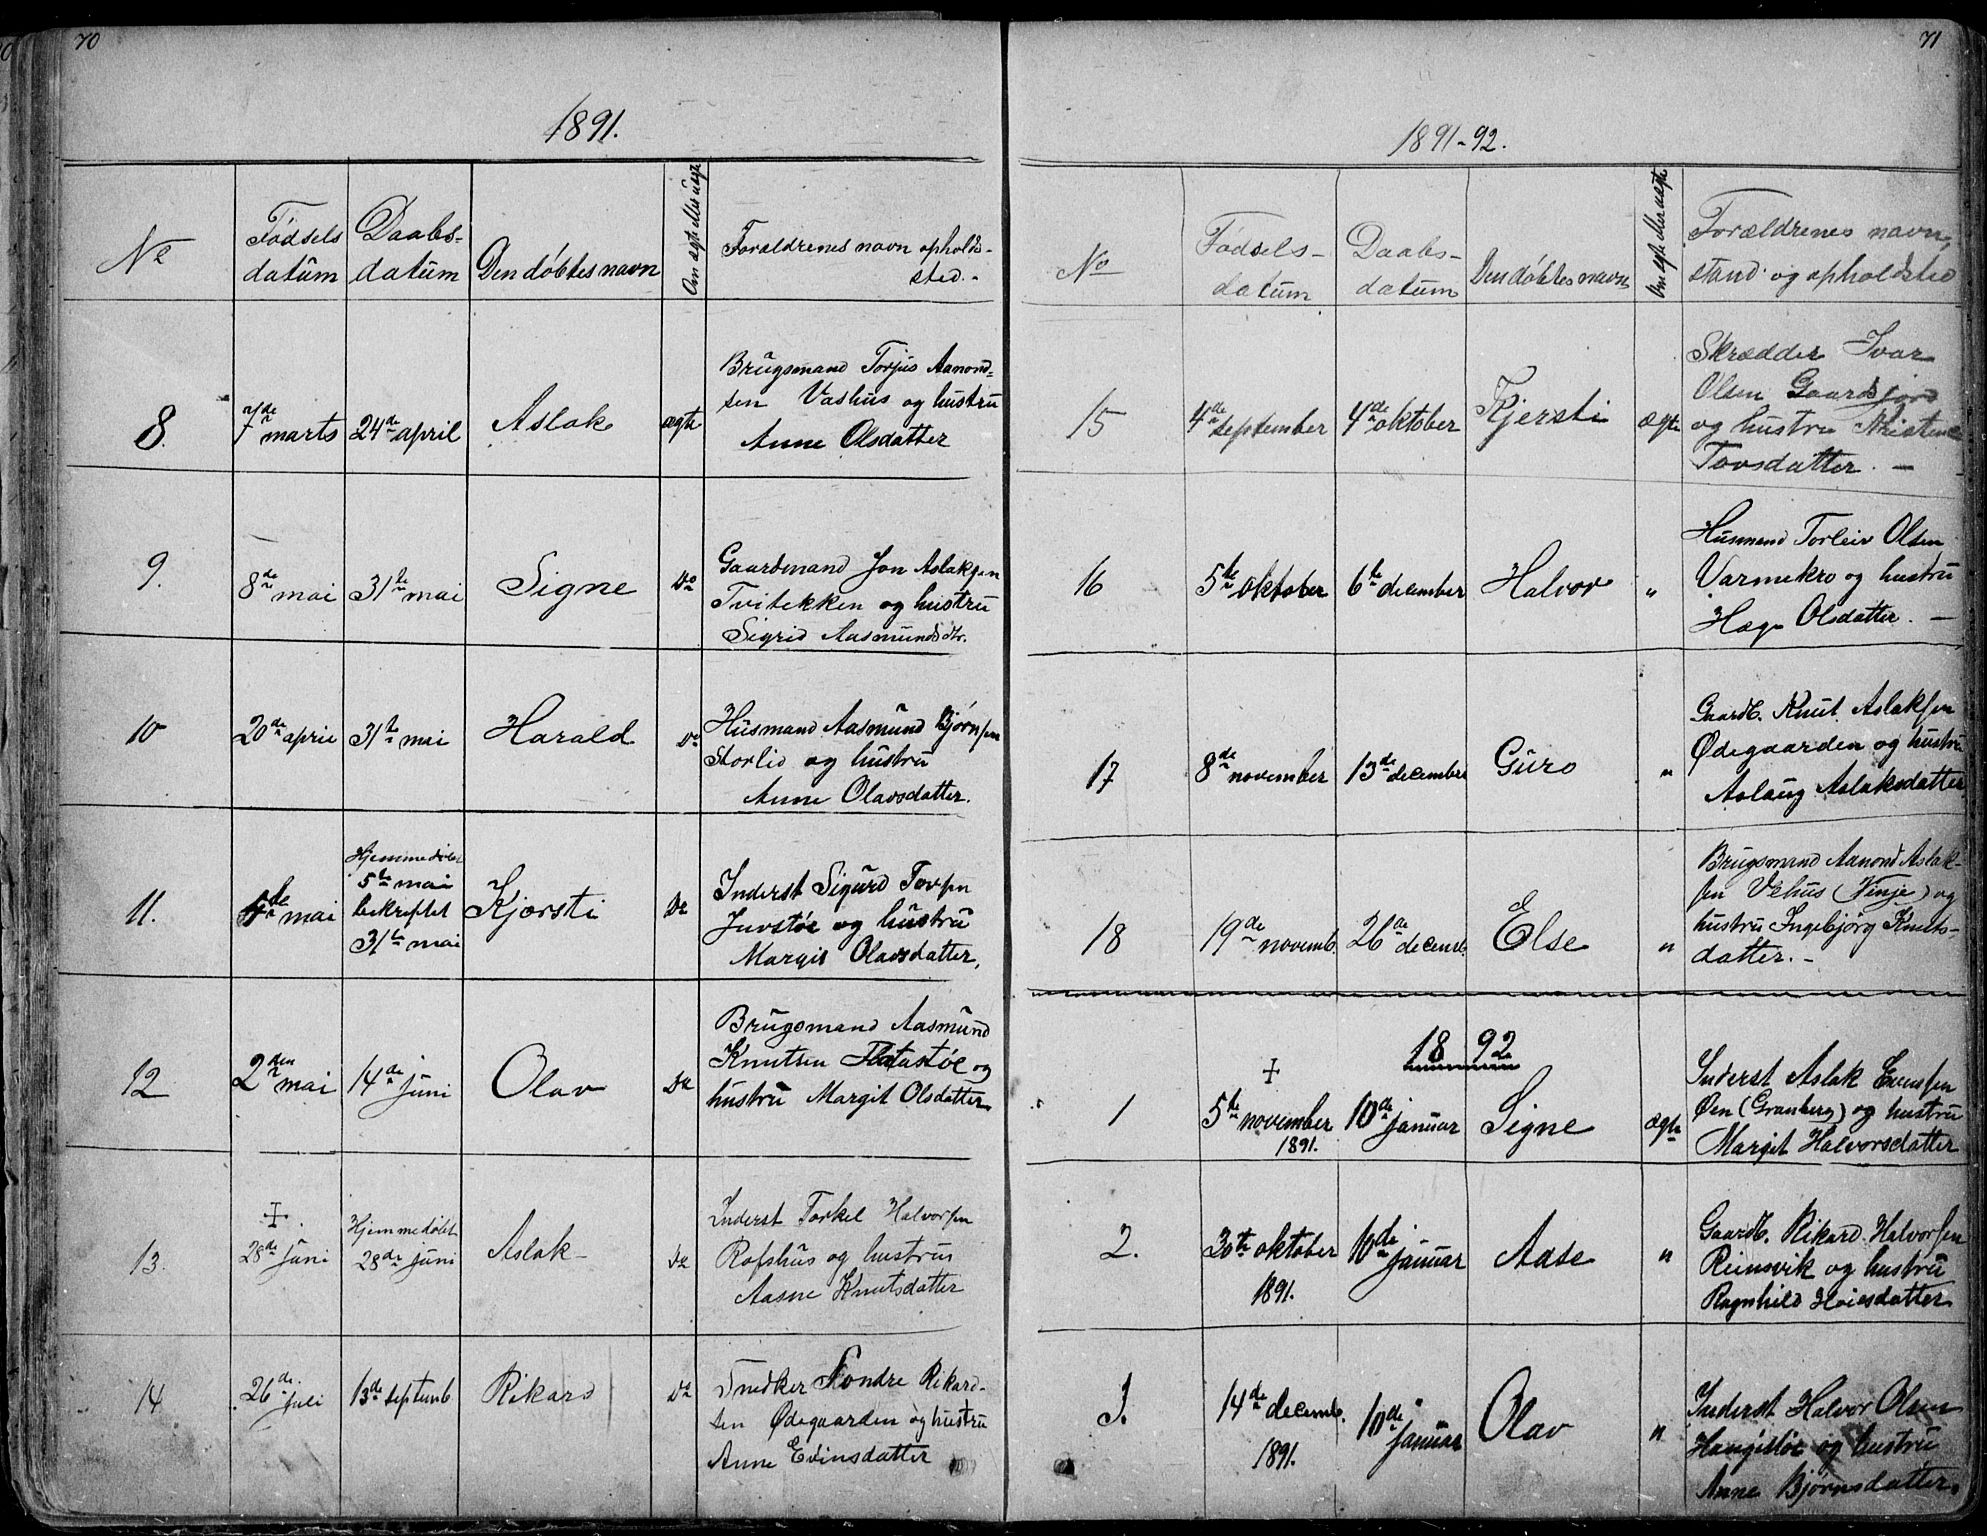 70
1891.
No
Fødsels
datum
Daabs-
datum
Den døbtes navn
Om ægte eller uægte
Forældrenes navn opholds-
sted.-
8.
7de marts
24de april
Aslak
ægte
Brugsmand Torjus Aanond-
sen Vashus og hustru
Anne Olsdatter
9.
8de mai
31te mai
Signe
Do
Gaardmand Jon Aslaksen
Tvitekken og hustru
Sigrid Aasmundsdtr.
10
20de april
31te mai
Harald
Do
Husmand Aasmund Bjørnsen
Storlid og hustru
Anne Olavsdatter.
11.
4de mai
Hjemmedøbt
5te mai
bekreftet
31te mai
Kjersti
Do
Inderst Sigurd Tovsen
Juvstøe og hustru
Margit Olavsdatter.
12
2den mai
14de juni
Olav
Do
Brugsmand Aasmund
Knutsen Flatastøe og
hustru Margit Olsdatter
13.
+
28de juni
Hjemmedøbt
28de juni
Aslak
Do
Inderst Torkel Halvorsen
Rofshus og hustru
Aasne Knutsdatter
14
26de juli
13de septemb
Rikard
Do
Snedker Sondre Rikard-
sen Ødegaarden og hustru
Anne Evinsdatter
71
1891-92.
No
Fødsels-
datum
Daabs-
datum
Den døbtes navn
Om ægte eller uægte
Forældrenes navn,
stand og opholdsted
15
4de september
4de oktober
Kjersti
Ægte
Skrædder Ivar
Olsen Gaardsjord
og hustru Kristine
Tovsdatter. -
16
5te oktober
6te december
Halvor
"
Husmand Torleiv Olsen
Varmekro og hustru
Hæge Olsdatter. -
17
8de november
13de december
Guro
"
Gaardb. Knut Aslaksen
Ødegaarden og hustru
Aslaug Aslaksdatter
18
19de novemb.
26de decemb.
Else
"
Brugsmand Aanond Aslak-
sen Vehus (Vinje) og
hustru Ingebjørg Knuts-
datter. -
1892
1
+
5te november
1891.
10de januar
Signe
Ægte
Inderst Aslak Evensen
Øen (Granberg) og hustru
Margit Halvorsdatter
2.
30te oktober
1891.
10de januar
Aase
"
Gaardb. Rikard Halvorsen
Reinsvik og hustru
Ragnhild
3.
14de decemb.
1891.
10de januar
Olav
"
Inderst Halvor Olsen
og hustru
Anne Bjørnsdatter.